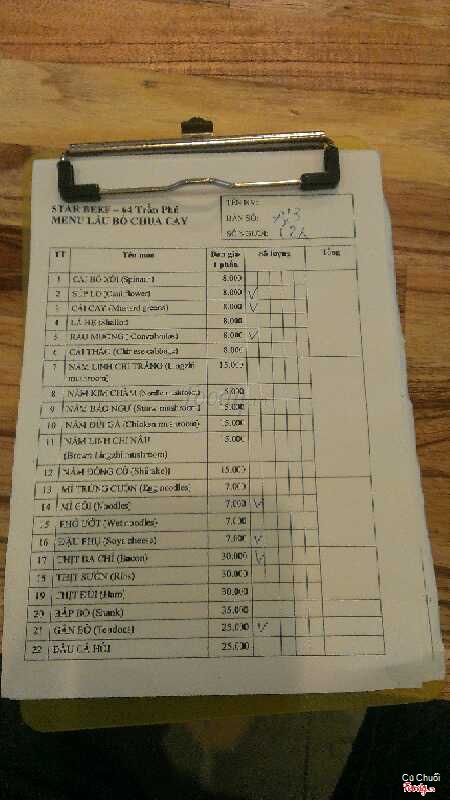 STAR BEEF – 64 Trần Phú
MENU LẨU BÒ CHUA CAY
TÊN NV:
BÀN SỐ:
SỐ NGƯỜI:
TT Tên món Đơn giá 1 phần Số lượng Tổng
1 CẢI BÓ XÔI (Spinach) 8.000
2 SÚP LƠ (Cauliflower) 8.000
3 CẢI CAY (Mustard greens) 8.000
4 LÁ HẸ (Shallot) 8.000
5 RAU MUỐNG (Convolvulus) 8.000
6 CẢI THẢO (Chinese cabbage) 8.000
7 NẤM LINH CHI TRẮNG (Lingzhi 15.000
mushroom)
8 NẤM KIM CHÂM (Needle mushroom) 5.000
9 NẤM BÀO NGƯ (Straw mushroom) 5.000
10 NẤM ĐÙI GÀ (Chicken mushroom) 15.000
11 NẤM LINH CHI NÂU 5.000
(Brown Lingzhi mushroom)
12 NẤM ĐÔNG CÔ (Shiitake) 15.000
13 MÌ TRỨNG CUỘN (Egg noodles) 7.000
14 MÌ GÓI (Noodles) 7.000
15 PHỞ ƯỚT (Wet noodles) 7.000
16 ĐẬU PHỤ (Soya cheese) 7.000
17 THỊT BA CHỈ (Bacon) 30.000
18 THỊT SƯỜN (Ribs) 30.000
19 THỊT ĐÙI (Ham) 30.000
20 BẮP BÒ (Shank) 35.000
21 GÂN BÒ (Tendons) 25.000
22 ĐẦU CÁ HỒI 25.000
Củ Chuối
Foody.vn